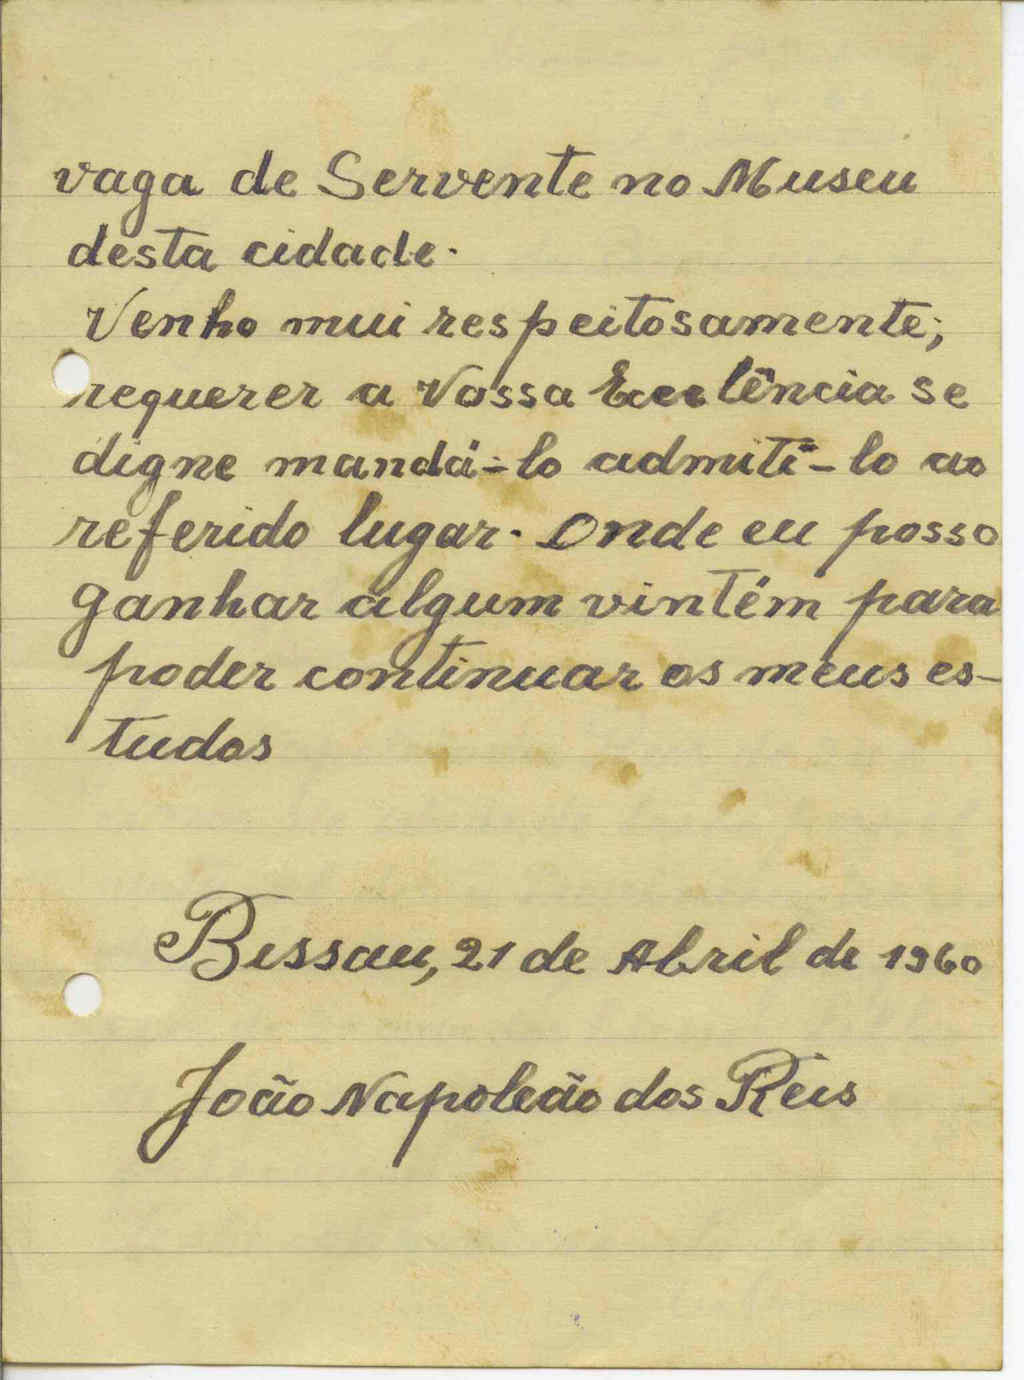 vaga de Servente no Museu
desta cidade.
Venho mui respeitosamente,
requerer a Vossa Excelência se
digne mandá-lo admiti-lo ao
referido lugar. Onde eu posso
ganhar algum vintém para
poder continuar os meus es-
tudos
Bissau, 21 de Abril de 1960
João Napoleão dos Reis